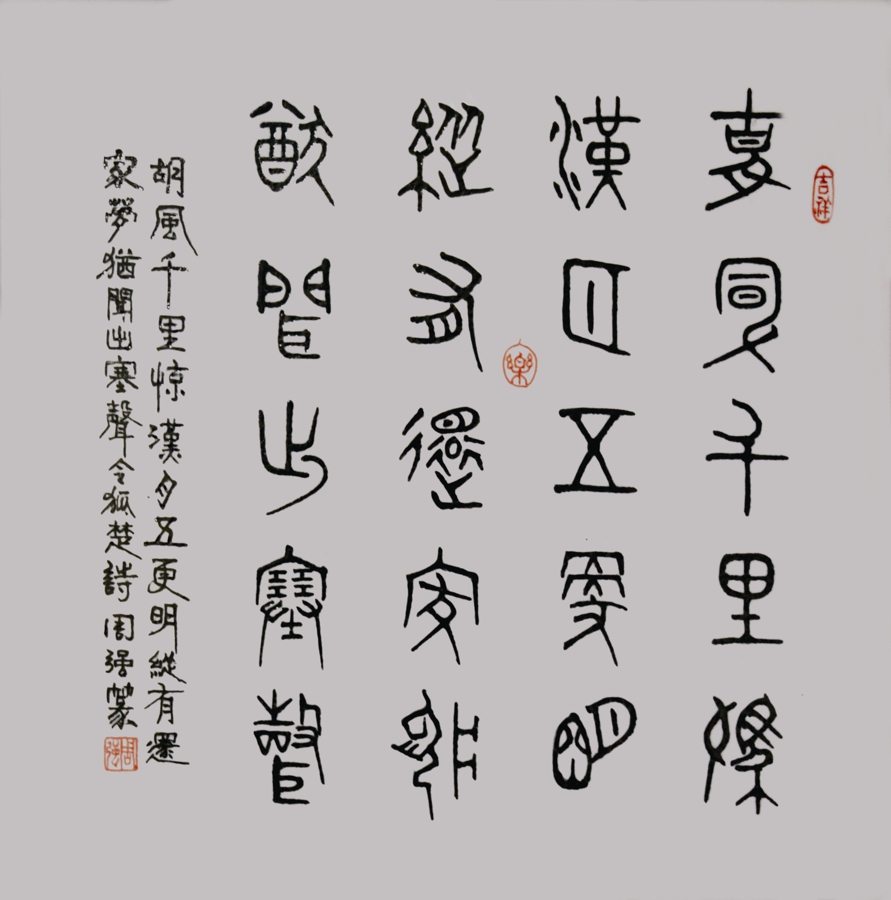 吉祥
胡風千里惊
漢月五更明
樂
縱有還家夢
猶聞出塞聲
胡風千里惊漢月五更明縱有還
家夢猶聞出塞聲令狐楚詩周强篆
周强